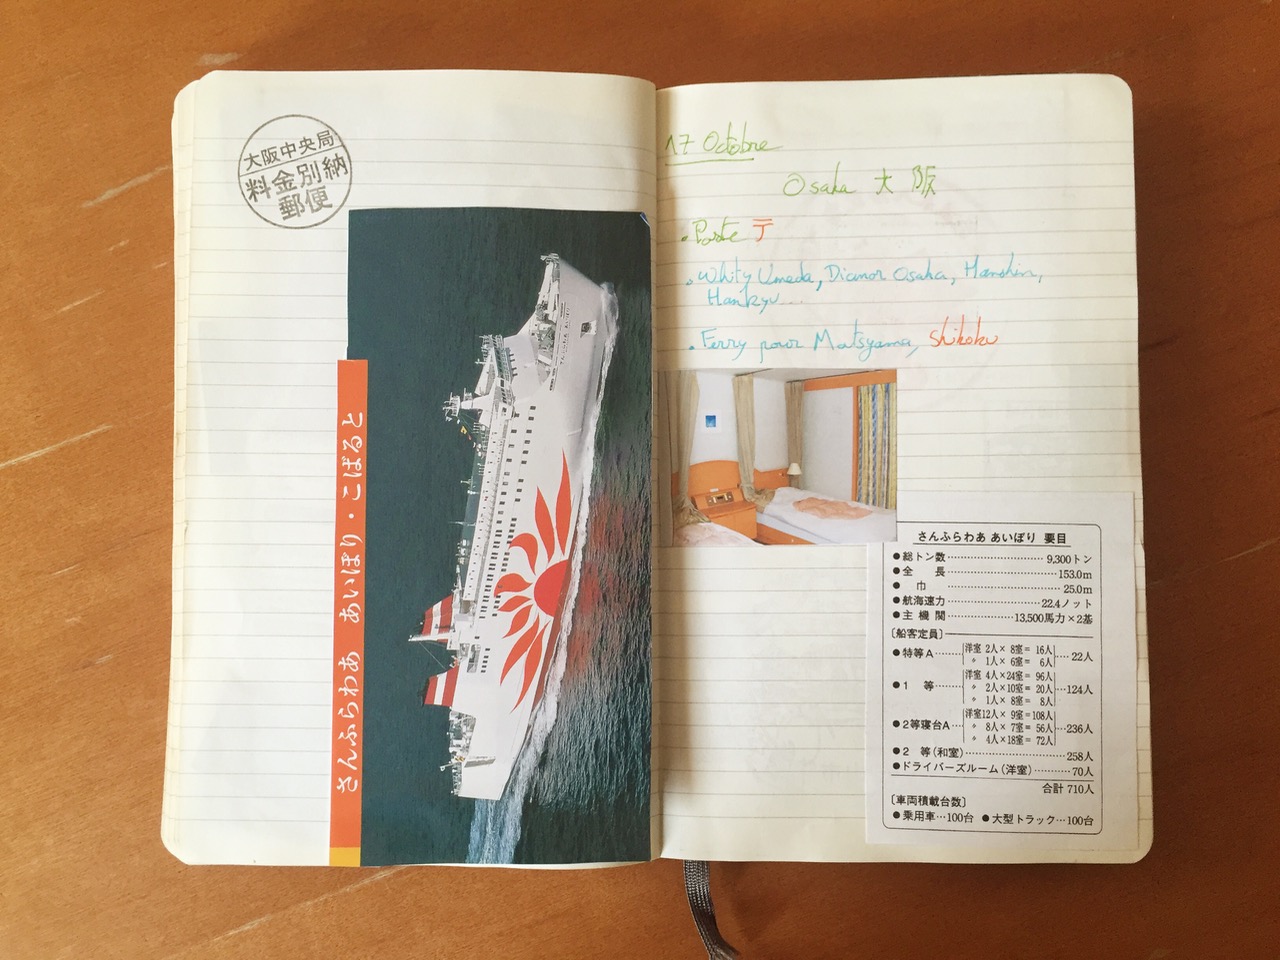 大阪中央局
料金別納
郵便
さんふらわあ あいぼり・こばると
17 Octobre
Osaka 大阪
• Poste 〒
• Whity Umeda, Diamor Osaka, Hanshin,
Hankyu...
• Ferry pour Matsyama, Shikoku
さんふらわあ あいぼり 要目
●総トン数 9,300トン
●全長 153.0m
●巾 25.0m
●航海速力 22.4ノット
●主機関 13,500馬力×2基
〔船客定員〕
●特等A 洋室 2人× 8室= 16人
〃 1人× 6室= 6人 22人
洋室 4人×24室= 96人
●1等 〃 2人×10室= 20人 124人
〃 1人× 8室= 8人
洋室12人× 9室=108人
●2等寝台A 〃 8人× 7室= 56人 236人
〃 4人×18室= 72人
●2等(和室) 258人
●ドライバーズルーム(洋室) 70人
合計 710人
〔車両積載台数〕
●乗用車…100台 ●大型トラック…100台